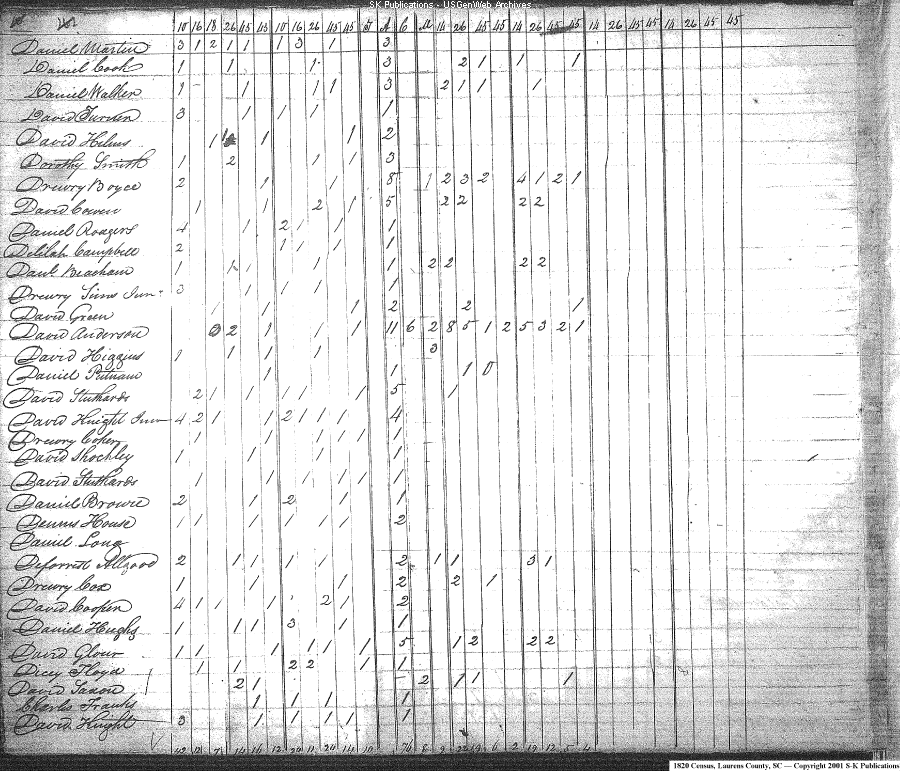 SK Publications - USGenWeb Archives
10 16 18 26 45 45 10 16 26 45 45 A C 14 26 45 45 14 26 45 45 14 26 45 45 14 26 45 45
Daniel Martin 3 1 2 1 1 1 3 1 3
Daniel Cook 1 1 1 3 2 1 1 1
Daniel Walker 1 1 1 1 3 2 1 1 1
David 3 1 1 1 1
David Helms 1 1 1 2
Dorothy Smith 1 2 1 1 3
Drewry Boyce 2 1 1 8 1 2 3 2 4 1 2 1
David Cowen 1 1 2 1 5 2 2 2 2
Daniel Rodgers 4 1 2 1 1 1
Delilah Campbell 2 1 1 1 1
Beacham 1 1 1 1 1 2 2 2 2
Drewry Sims Junr 3 1 1 1 1 1
David Green 1 1 1 2 2 1
David Anderson 0 2 1 1 1 11 6 2 8 5 1 2 5 3 2 1
David Higgins 1 1 1 1 3
Daniel Putnam 1 1 1 0
David Stuthards 2 1 1 1 1 1 1 5 1
David Knight Junr 4 2 1 1 2 1 1 1 4
Drewry 1 1 1 1 1 1
David Shockley 1 1 1 1 1
David Stuthards 1 1 1 1 1 1 1
Daniel Browne 2 1 2 1 1
Dennis House 1 1 1 1 1 1 2
Daniel Long
Deforrest Allgood 2 1 1 1 1 2 1 1 3 1
Drewry Cox 1 1 1 2 2 1
David Cooper 4 1 1 1 1 2 1 2
Daniel Hughs 1 1 1 3 1 1
David Glour 1 1 1 1 1 1 5 1 2 2 2
Dicey Floyd 1 1 2 2 1 1
David Saxon 2 1 2 1 1 1
Charles Franks 1 1 1 1
David Knight 3 1 1 1 1 1
1820 Census, Laurens County, SC — Copyright 2001 S-K Publications